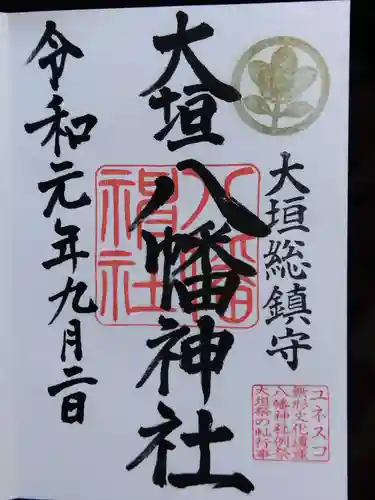 大垣総鎮守
大垣八幡神社
令和元年九月二日
八幡
神社
ユネスコ
無形文化遺産
八幡神社例祭
大垣祭の軕行事